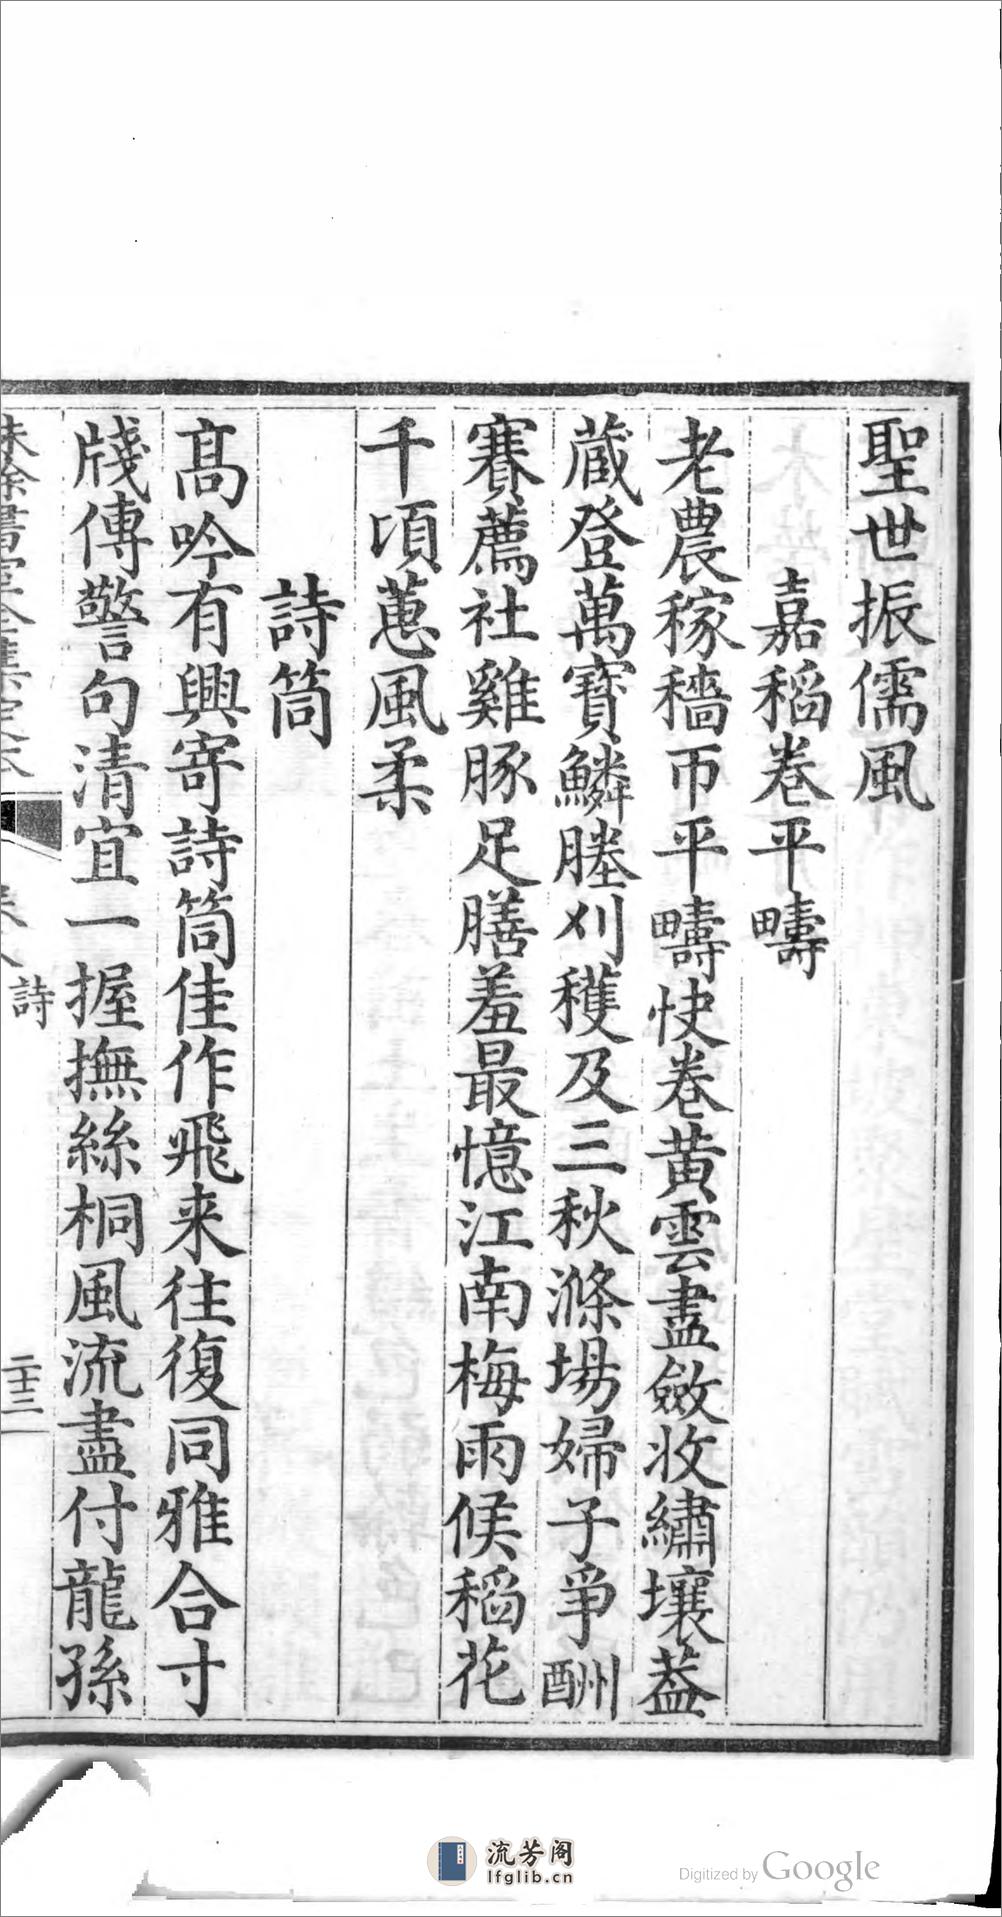 聖世振儒風
嘉稻卷平疇
老農稼穡帀平疇快卷黄雲盡斂收繡壤葢
蔵登萬寶鱗塍刈穫及三秋滌場婦子爭酬
賽薦社雞豚足膳羞最憶江南梅雨候稻花
千頃蔥風柔
詩筒
髙吟有興寄詩筒佳作飛来往復同雅合寸
牋傳警句清宜一握撫絲桐風流盡付龍孫
詩
二十三
流芳阁
lfglib.cn
Digitized by Google